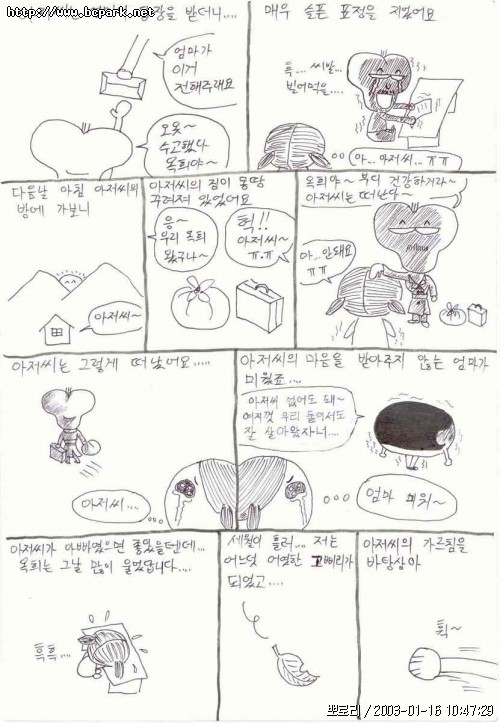 http://www.bcpark.net
장을 받더니....
엄마가
이거
전해주래요
오옷~
수고했다
옥희야~
매우 슬픈 표정을 지었어요
흑... 씨발..
빌어먹을....
아... 아저씨... ㅠㅠ
다음날 아침 아저씨의
방에 가보니
아저씨~
아저씨의 짐이 몽땅
꾸려져 있었어요
응~
우리 옥희
왔구나~
헉!!
아저씨~
ㅠ.ㅠ
옥희야~ 부디 건강하거라~
아저씨는 떠난다~
아..안돼요
ㅠㅠ
아저씨는 그렇게 떠났어요.....
아저씨...
아저씨의 마음을 받아주지 않는 엄마가
미웠죠....
아저씨 없어도 돼~
여지껏 우리 둘이서도
잘 살아왔자너....
엄마 미워~
아저씨가 아빠였으면 좋았을텐데...
옥희는 그날 많이 울었답니다....
흑흑...
세월이 흘러... 저는
어느덧 어엿한 고삐리가
되었고....
아저씨의 가르침을
바탕삼아
휙~
뽀로리 / 2003-01-16 10:47:29